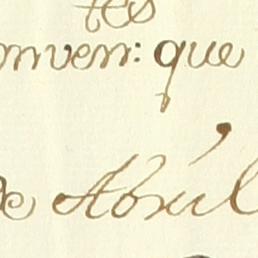 tes
onven: que
de Abril